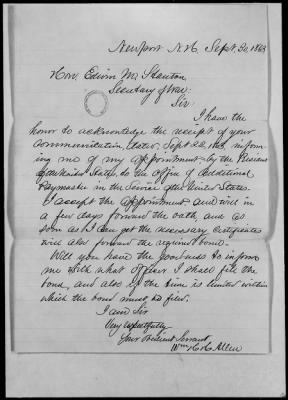 Newport N.H. Sept. 30, 1863
Hon. Edwin M. Stanton
Secretary of War:
Sir:
I have the
honor to acknowledge the receipt of your
communication, dated, Sept 22, 1863, inform-
ing me of my appointment by the President
of the United States, to the Office of Additional
Paymaster in the Service of the United States.
I accept the appointment and will in
a few days forward the oath, and as
soon as I can get the necessary certificates
will also forward the required bond.
Will you have the goodness to inform
me with what officer I shall file the
bond, and also if the time is limited within
which the bond must be filed.
I am Sir
Very respectfully
Your obedient Servant
Wm H H Allen